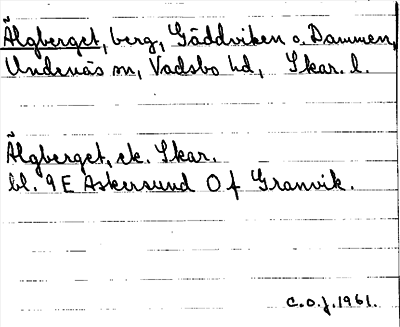 Älgberget, berg, Gäddviken o. Dammen,
Undenäs sn, Vadsbo hd, Skar. l.
Älgberget, ek. Skar.
bl. 9 E Askersund O f Granvik.
C.O.J. 1961.